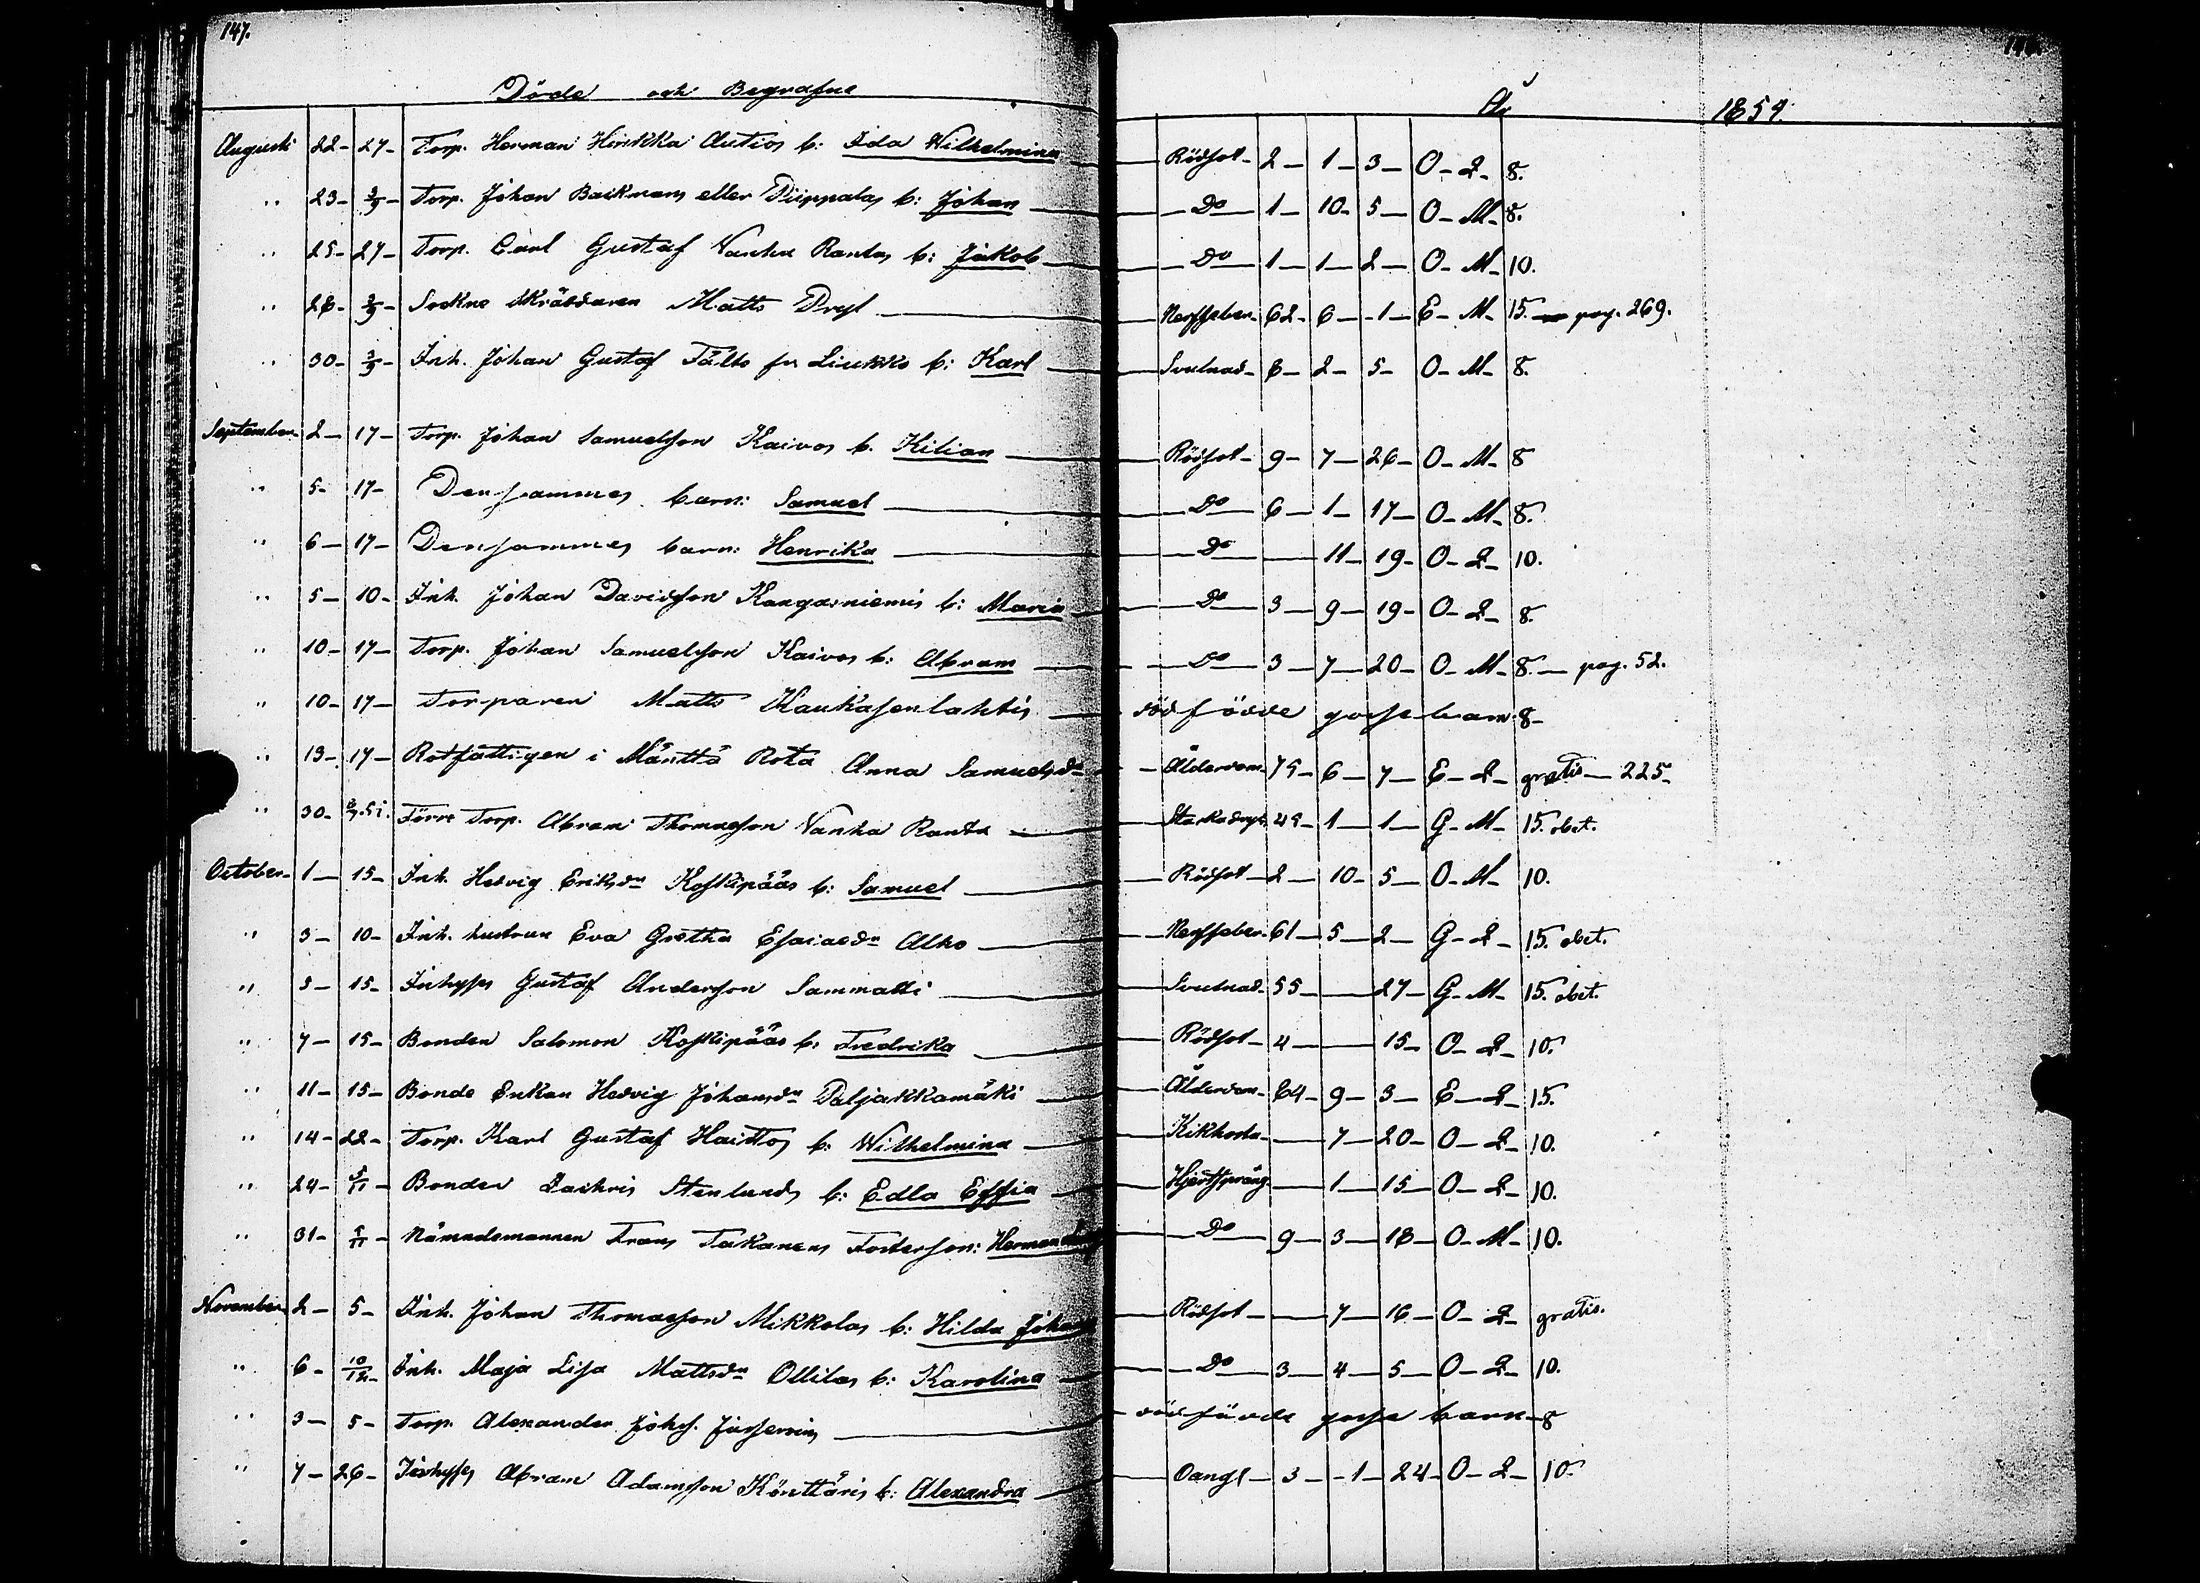 147.
Döde och Begrafne År 1854.
Augusti 22- 27- Torp. Herman Hirikka Autios b: Ida Wilhelmina Rödsot- 2- 1- 3- O- Q- 8.
" 23- 3/9- Torp. Johan Backmans eller Piippalas b: Johan Do 1- 10- 5- O- M- 8.
" 25- 27- Torp. Carl Gustaf Vanha Rantas b: Jakob Do 1- 1- 2- O- M- 10.
" 26- 3/9- Sockne skräddaren Matts 62- 6- 1- E- M- 15. pag. 269.
" 30- 3/9- Inh. Johan Gustaf Tälts fr Liukko b: Karl 8- 2- 5- O- M- 8.
September 2- 17- Torp. Johan Samuelsson Kaivos b. Kilian Rödsot- 9- 7- 26- O- M- 8
" 5- 17- Densammes barn: Samuel Do 6- 1- 17- O- M- 8.
" 6- 17- Densammes barn: Henrika Do 11- 19- O- Q- 10.
" 5- 10- Inh. Johan Davidsson Kangasniemis b: Maria Do 3- 9- 19- O- Q- 8.
" 10- 17- Torp. Johan Samuelsson Kaivos b: Abram Do 3- 7- 20- O- M- 8.- pag. 52.
" 10- 17- Torparen Matts Kaukasenlahtis dödfödde gosse barn 8-
" 13- 17- Rotfattigen i Mänttä Rota Anna Samuelsdr Ålderdom- 75- 6- 7- E- Q- gratis- 225-
" 30- Förre Torp. Abram Thomasson Vanha Ranta 49- 1- 1- G- M- 15. obet.
October- 1- 15- Inh. Hedvig Eriksdr Koskipääs b: Samuel Rödsot- 2- 10- 5- O- M- 10.
" 3- 10- Inh. hustrun Eva Gretha Esaiaedr Alho 61- 5- 2- G- Q- 15. obet.
" 5- 15- Inhyses Gustaf Andersson Sammatti 55- 27- G- M- 15. obet.
" 7- 15- Bonden Salomon Koskipääs b: Fredrika Rödsot- 4- 15- O- Q- 10.
" 11- 15- Bonde Enkan Hedvig Johansdr Paljakkamäki Ålderdom- 64- 9- 3- E- Q- 15.
" 14- 22- Torp. Karl Gustaf Haittos b: Wilhelmina Kikhosta- 7- 20- O- Q- 10.
" 24- 5/11- Bonden Zachris Stenlunds b: Edla Effia Hjertsprång 1- 15- O- Q- 10.
" 31- 5/11- Nämndemannen Frans Takanens Fosterson: Herman Do 9- 3- 18- O- M- 10.
November 2- 5- Inh. Johan Thomasson Mikkolas b: Hilda Rödsot- 7- 16- O- Q- gratis.
" 6- 10/12- Inh. Maja Lisa Mattsdr Ollilas b: Karolina Do 3- 4- 5- O- Q- 10.
" 3- 5- Torp. Alexander Johs. dödfödde gosse barn- 8
" 7- 26- Inhyses Abram Adamsson Könttäris b: Alexandra 3- 1- 24- O- Q- 10.